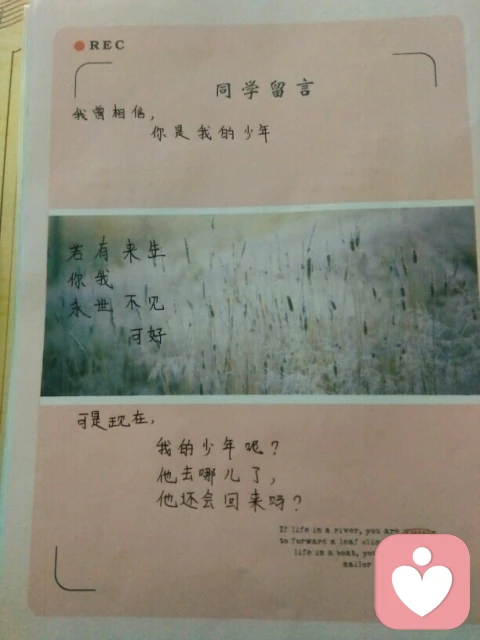 REC
同学留言
我曾相信，
你是我的少年
若有来生
你我
永世不见
可好
可是现在，
我的少年呢？
他去哪儿了，
他还会回来吗？
If life is a river, you are
to forward a leaf
life is a boat, you
sailor